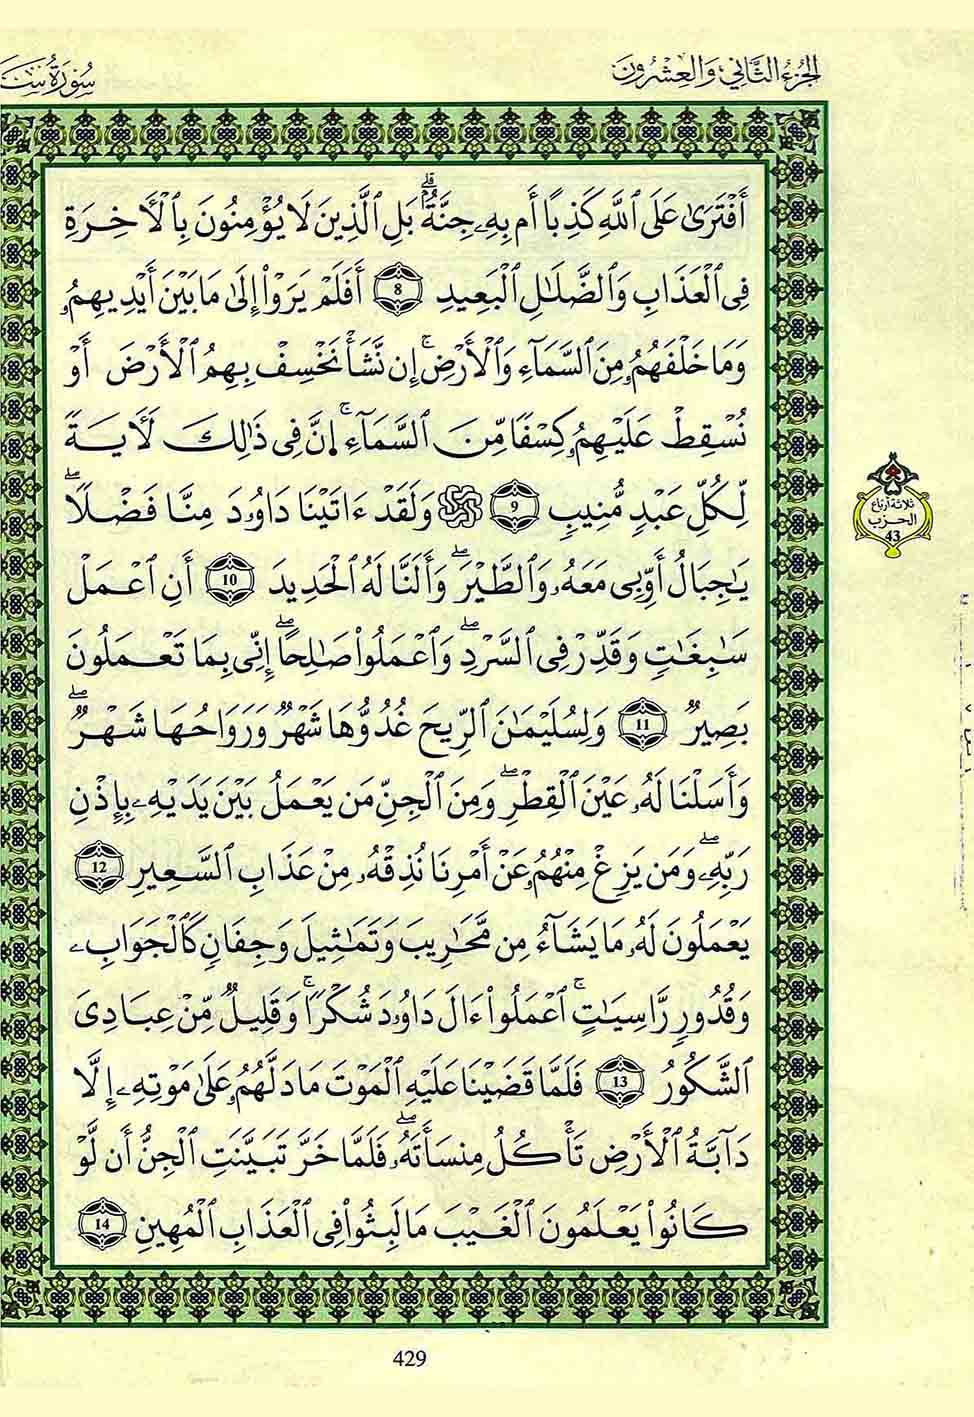 الجزء الثاني والعشرون
سورة سبأ
أَفْتَرَىٰ عَلَى ٱللَّهِ كَذِبًا أَم بِهِۦ جِنَّةٌۢ ۗ بَلِ ٱلَّذِينَ لَا يُؤْمِنُونَ بِٱلْأَخِرَةِ
فِى ٱلْعَذَابِ وَٱلضَّلَٰلِ ٱلْبَعِيدِ 8 أَفَلَمْ يَرَوْا۟ إِلَىٰ مَا بَيْنَ أَيْدِيهِمُۥ
وَمَا خَلْفَهُمُۥ مِنَ ٱلسَّمَآءِ وَٱلْأَرْضِ ۚ إِن نَّشَأْ نَخْسِفْ بِهِمُ ٱلْأَرْضَ أَوْ
نُسْقِطْ عَلَيْهِمُۥ كِسْفًا مِّنَ ٱلسَّمَآءِ ۚ إِنَّ فِى ذَٰلِكَ لَأَيَةً
لِّكُلِّ عَبْدٍ مُّنِيبٍ 9 وَلَقَدْ ءَاتَيْنَا دَاوُۥدَ مِنَّا فَضْلًا ۖ
يَٰجِبَالُ أَوِّبِى مَعَهُۥ وَٱلطَّيْرَ ۖ وَأَلَنَّا لَهُ ٱلْحَدِيدَ 10 أَنِ ٱعْمَلْ
سَٰبِغَٰتٍ وَقَدِّرْ فِى ٱلسَّرْدِ ۖ وَٱعْمَلُوا۟ صَٰلِحًا ۖ إِنِّى بِمَا تَعْمَلُونَ
بَصِيرٌ 11 وَلِسُلَيْمَٰنَ ٱلرِّيحَ غُدُوُّهَا شَهْرٌ وَرَوَاحُهَا شَهْرٌ ۖ
وَأَسَلْنَا لَهُۥ عَيْنَ ٱلْقِطْرِ ۖ وَمِنَ ٱلْجِنِّ مَن يَعْمَلُ بَيْنَ يَدَيْهِۦ بِإِذْنِ
رَبِّهِۦ ۖ وَمَن يَزِغْ مِنْهُمُۥ عَنْ أَمْرِنَا نُذِقْهُۥ مِنْ عَذَابِ ٱلسَّعِيرِ 12
يَعْمَلُونَ لَهُۥ مَا يَشَآءُ مِن مَّحَٰرِيبَ وَتَمَٰثِيلَ وَجِفَانٍ كَٱلْجَوَابِۦ
وَقُدُورٍ رَّاسِيَٰتٍ ۚ ٱعْمَلُوٓا۟ ءَالَ دَاوُۥدَ شُكْرًا ۚ وَقَلِيلٌ مِّنْ عِبَادِىَ
ٱلشَّكُورُ 13 فَلَمَّا قَضَيْنَا عَلَيْهِ ٱلْمَوْتَ مَا دَلَّهُمُۥ عَلَىٰ مَوْتِهِۦ إِلَّا
دَآبَّةُ ٱلْأَرْضِ تَأْكُلُ مِنسَأَتَهُۥ ۖ فَلَمَّا خَرَّ تَبَيَّنَتِ ٱلْجِنُّ أَن لَّوْ
كَانُوا۟ يَعْلَمُونَ ٱلْغَيْبَ مَا لَبِثُوا۟ فِى ٱلْعَذَابِ ٱلْمُهِينِ 14
ثلاثة أرباع
الحزب
43
429